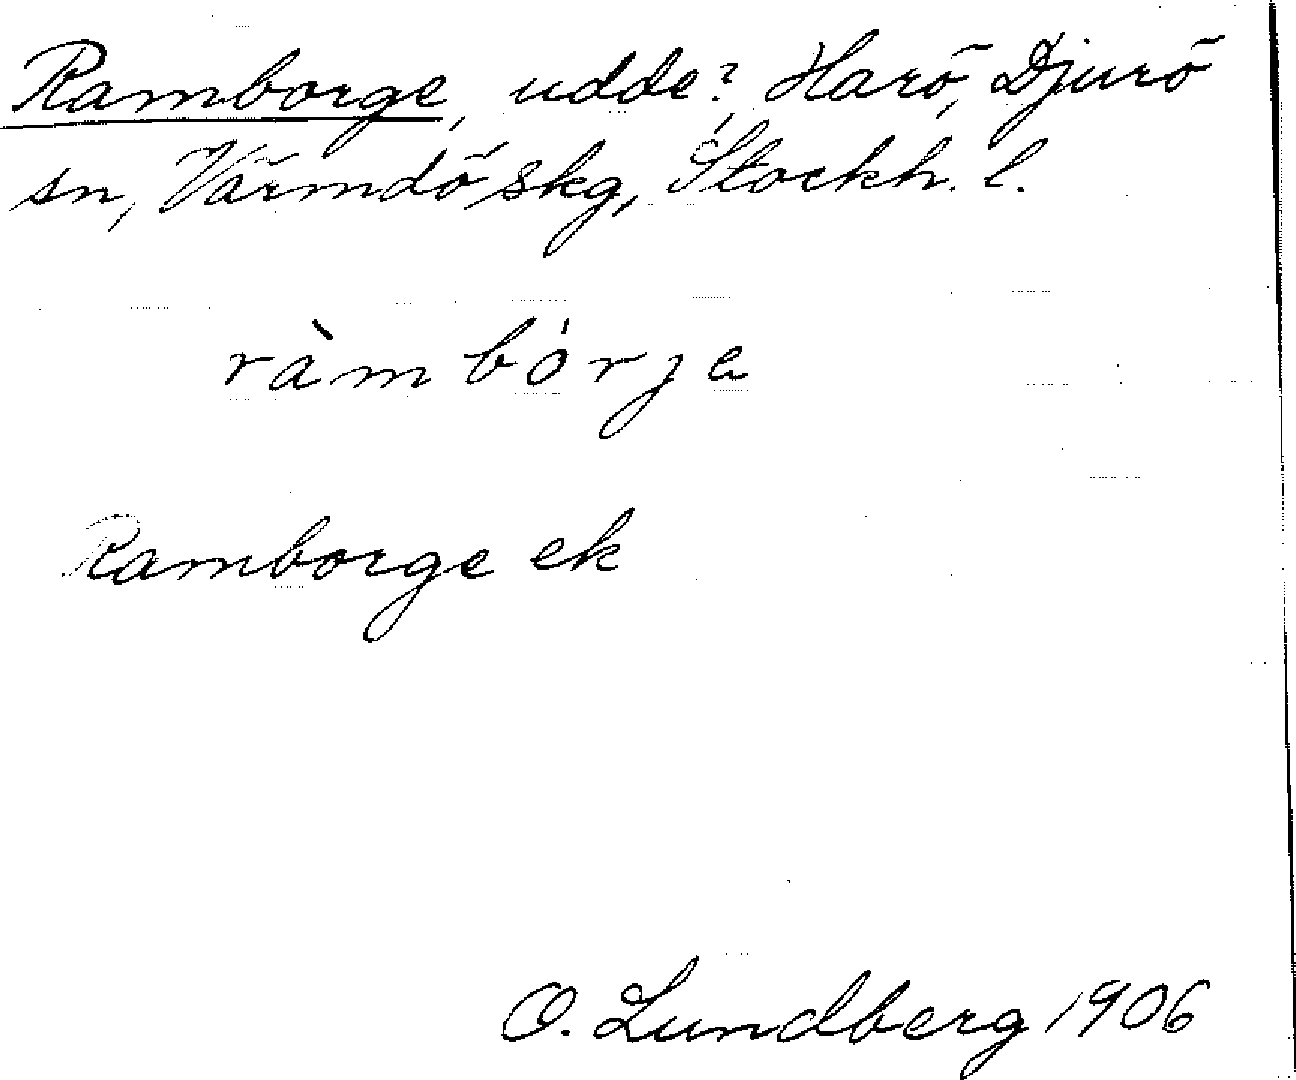 Ramborge, udde?, Harö, Djurö
sn, Värmdö skg, Stockh. l.
ràmbórja
Ramborge ek
O. Lundberg 1906